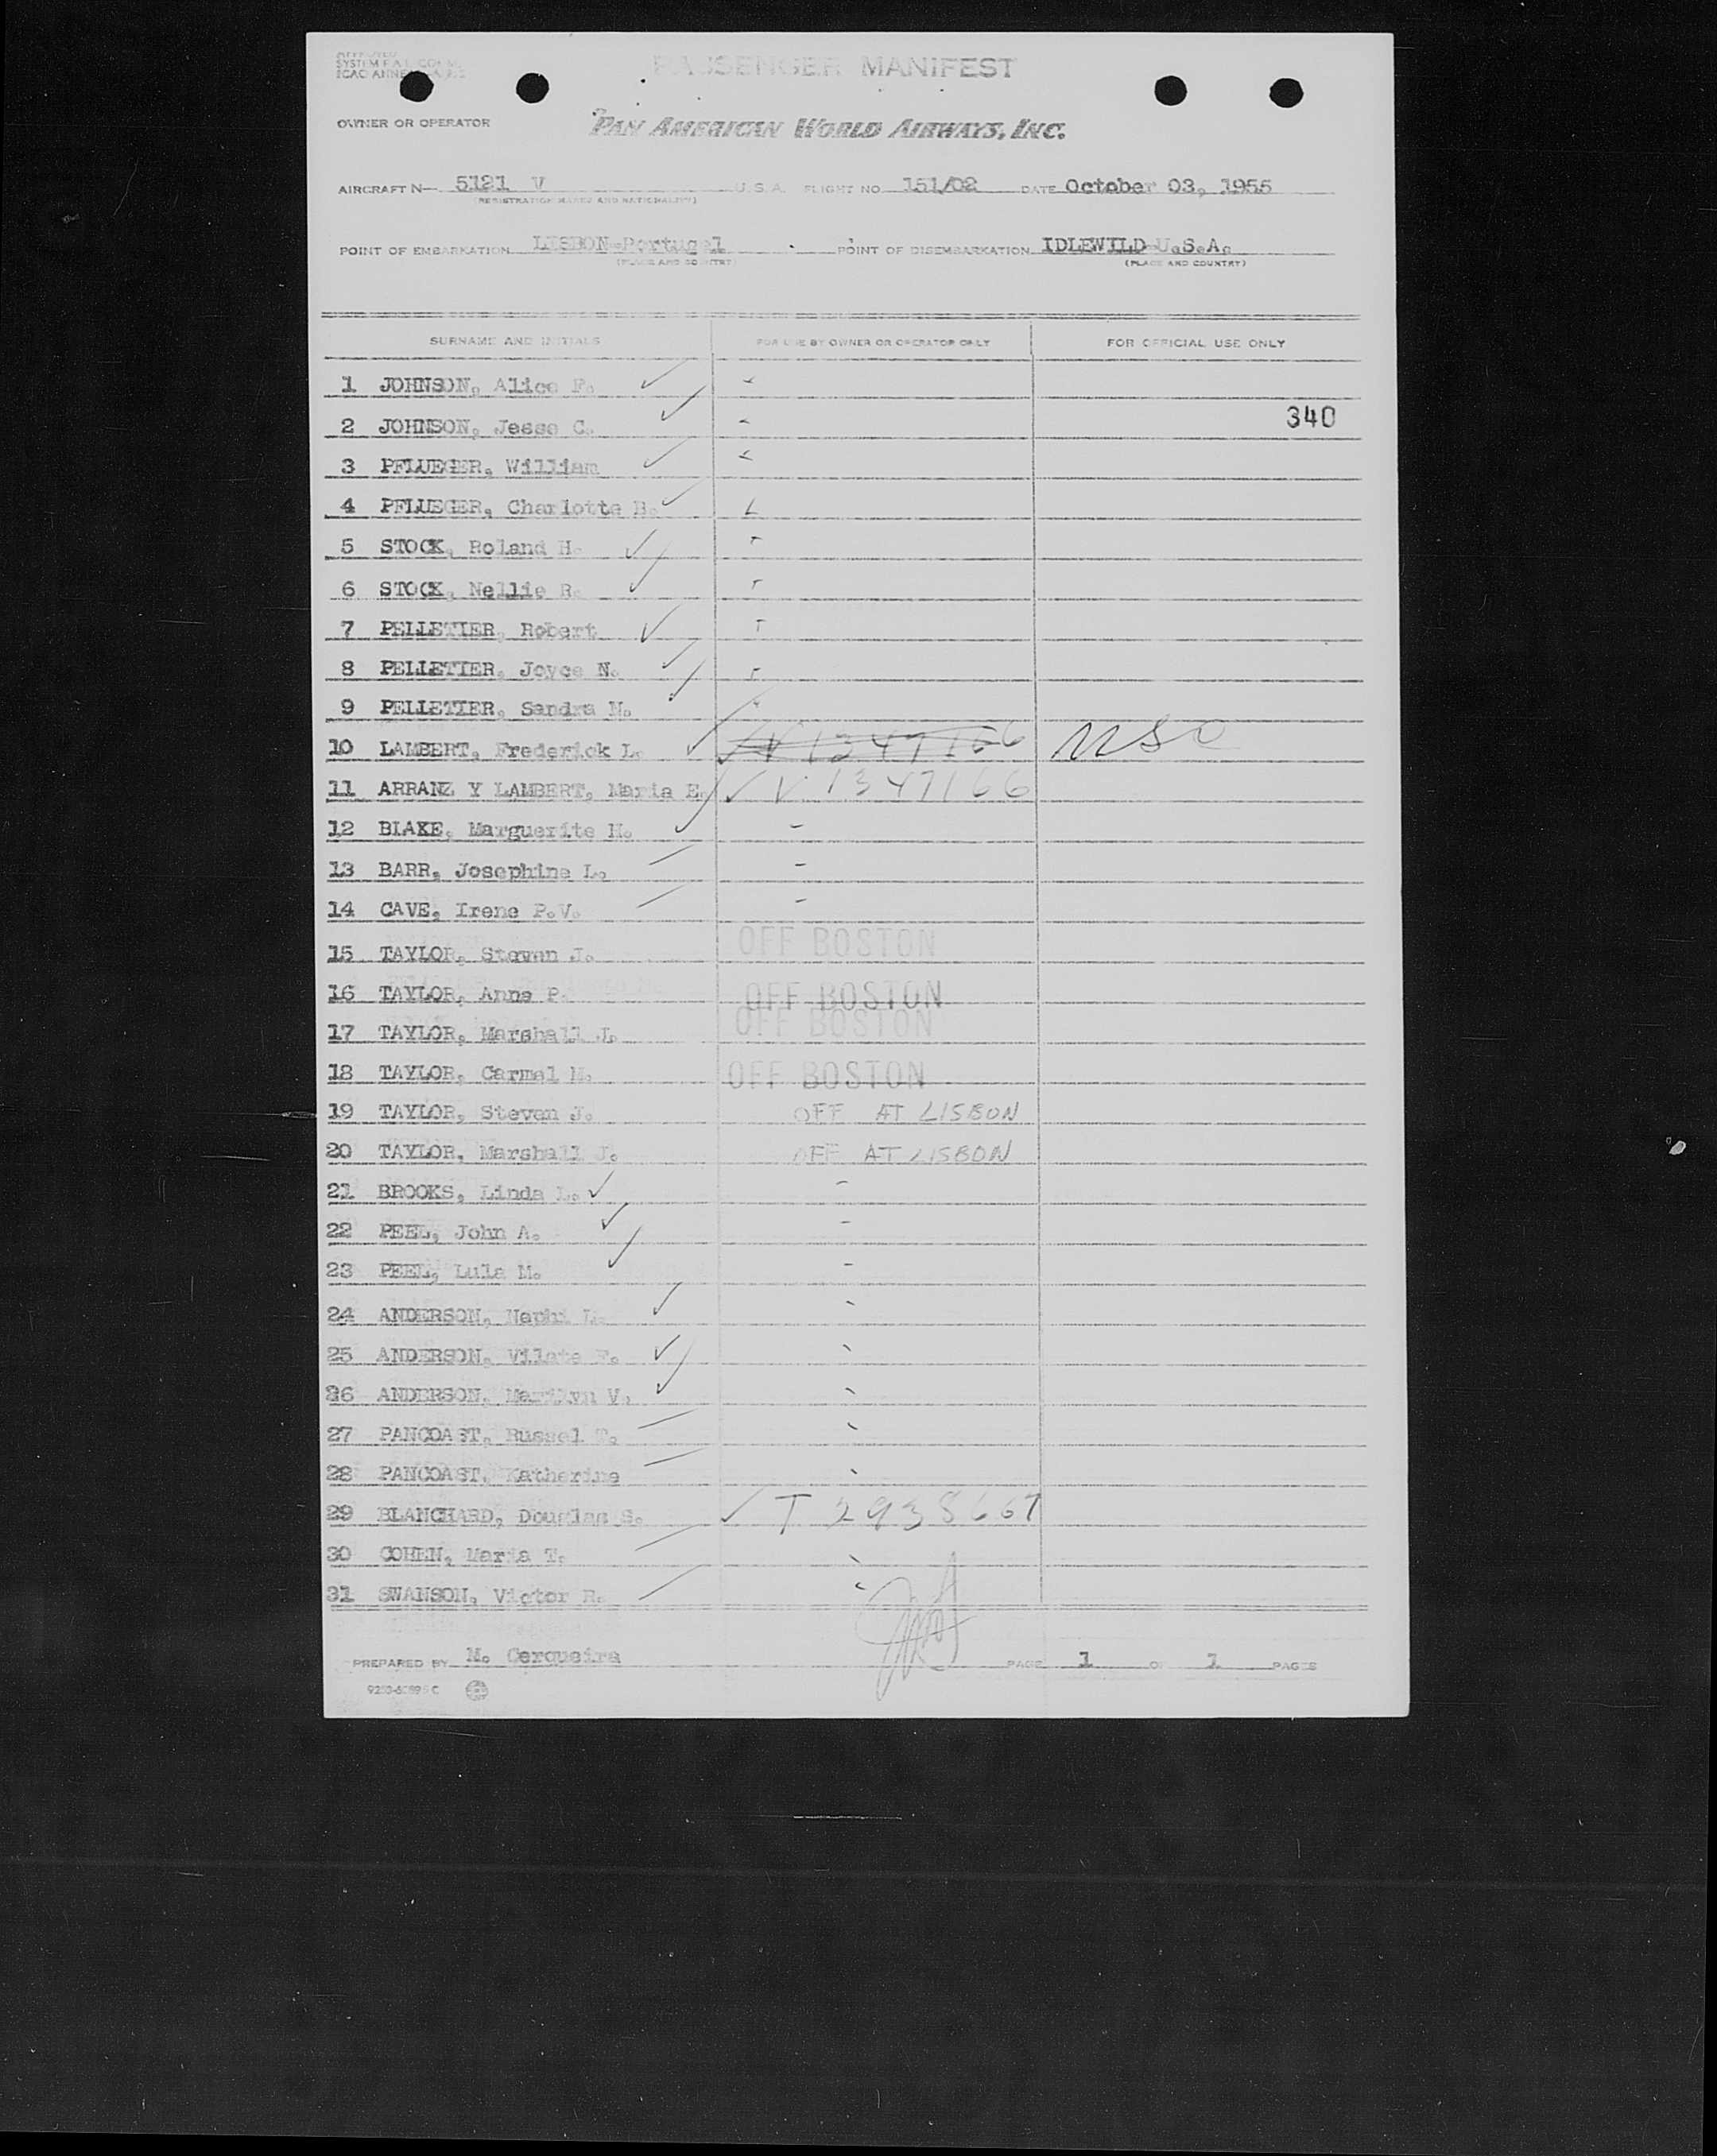 PASSENGER MANIFEST
OWNER OR OPERATOR PAN AMERICAN WORLD AIRWAYS, INC.
AIRCRAFT N— 5121 V U.S.A. FLIGHT NO. 151/02 DATE October 03, 1955
(REGISTRATION MARKS AND NATIONALITY)
POINT OF EMBARKATION LISBON-Portugal POINT OF DISEMBARKATION IDLEWILD-U.S.A.
(PLACE AND COUNTRY) (PLACE AND COUNTRY)
SURNAME AND INITIALS FOR USE BY OWNER OR OPERATOR ONLY FOR OFFICIAL USE ONLY
1 JOHNSON, Alice F. ✓
340
2 JOHNSON, Jesse C. ✓
3 PFLUEGER, William ✓
4 PFLUEGER, Charlotte B. ✓
5 STOCK, Roland H. ✓
6 STOCK, Nellie R. ✓
7 PELLETIER, Robert ✓
8 PELLETIER, Joyce N. ✓
9 PELLETIER, Sandra M. ✓
10 LAMBERT, Frederick L. ✓ V 1347166 USC
11 ARRANZ Y LAMBERT, Maria E. ✓ V 1347166
12 BLAKE, Marguerite H. ✓ -
13 BARR, Josephine L. -
14 CAVE, Irene P.V. -
15 TAYLOR, Steven J. OFF BOSTON
16 TAYLOR, Anne P. OFF BOSTON
17 TAYLOR, Marshall J. OFF BOSTON
18 TAYLOR, Carmel M. OFF BOSTON
19 TAYLOR, Steven J. OFF AT LISBON
20 TAYLOR, Marshall J. OFF AT LISBON
21 BROOKS, Linda L. ✓ -
22 PEEL, John A. ✓ -
23 PEEL, Lula M. ✓ -
24 ANDERSON, Nephi L. ✓
25 ANDERSON, Vilate F. ✓
26 ANDERSON, Marilyn V. ✓
27 PANCOAST, Russel T.
28 PANCOAST, Katherine
29 BLANCHARD, Douglas S. ✓ T 2938667
30 COHEN, Maria T.
31 SWANSON, Victor R.
PREPARED BY M. Cerqueira PAGE 1 OF 1 PAGES